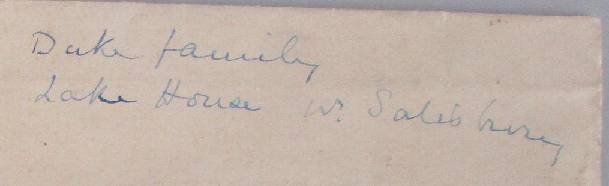 Duke family
Lake House Nr. Salisbury